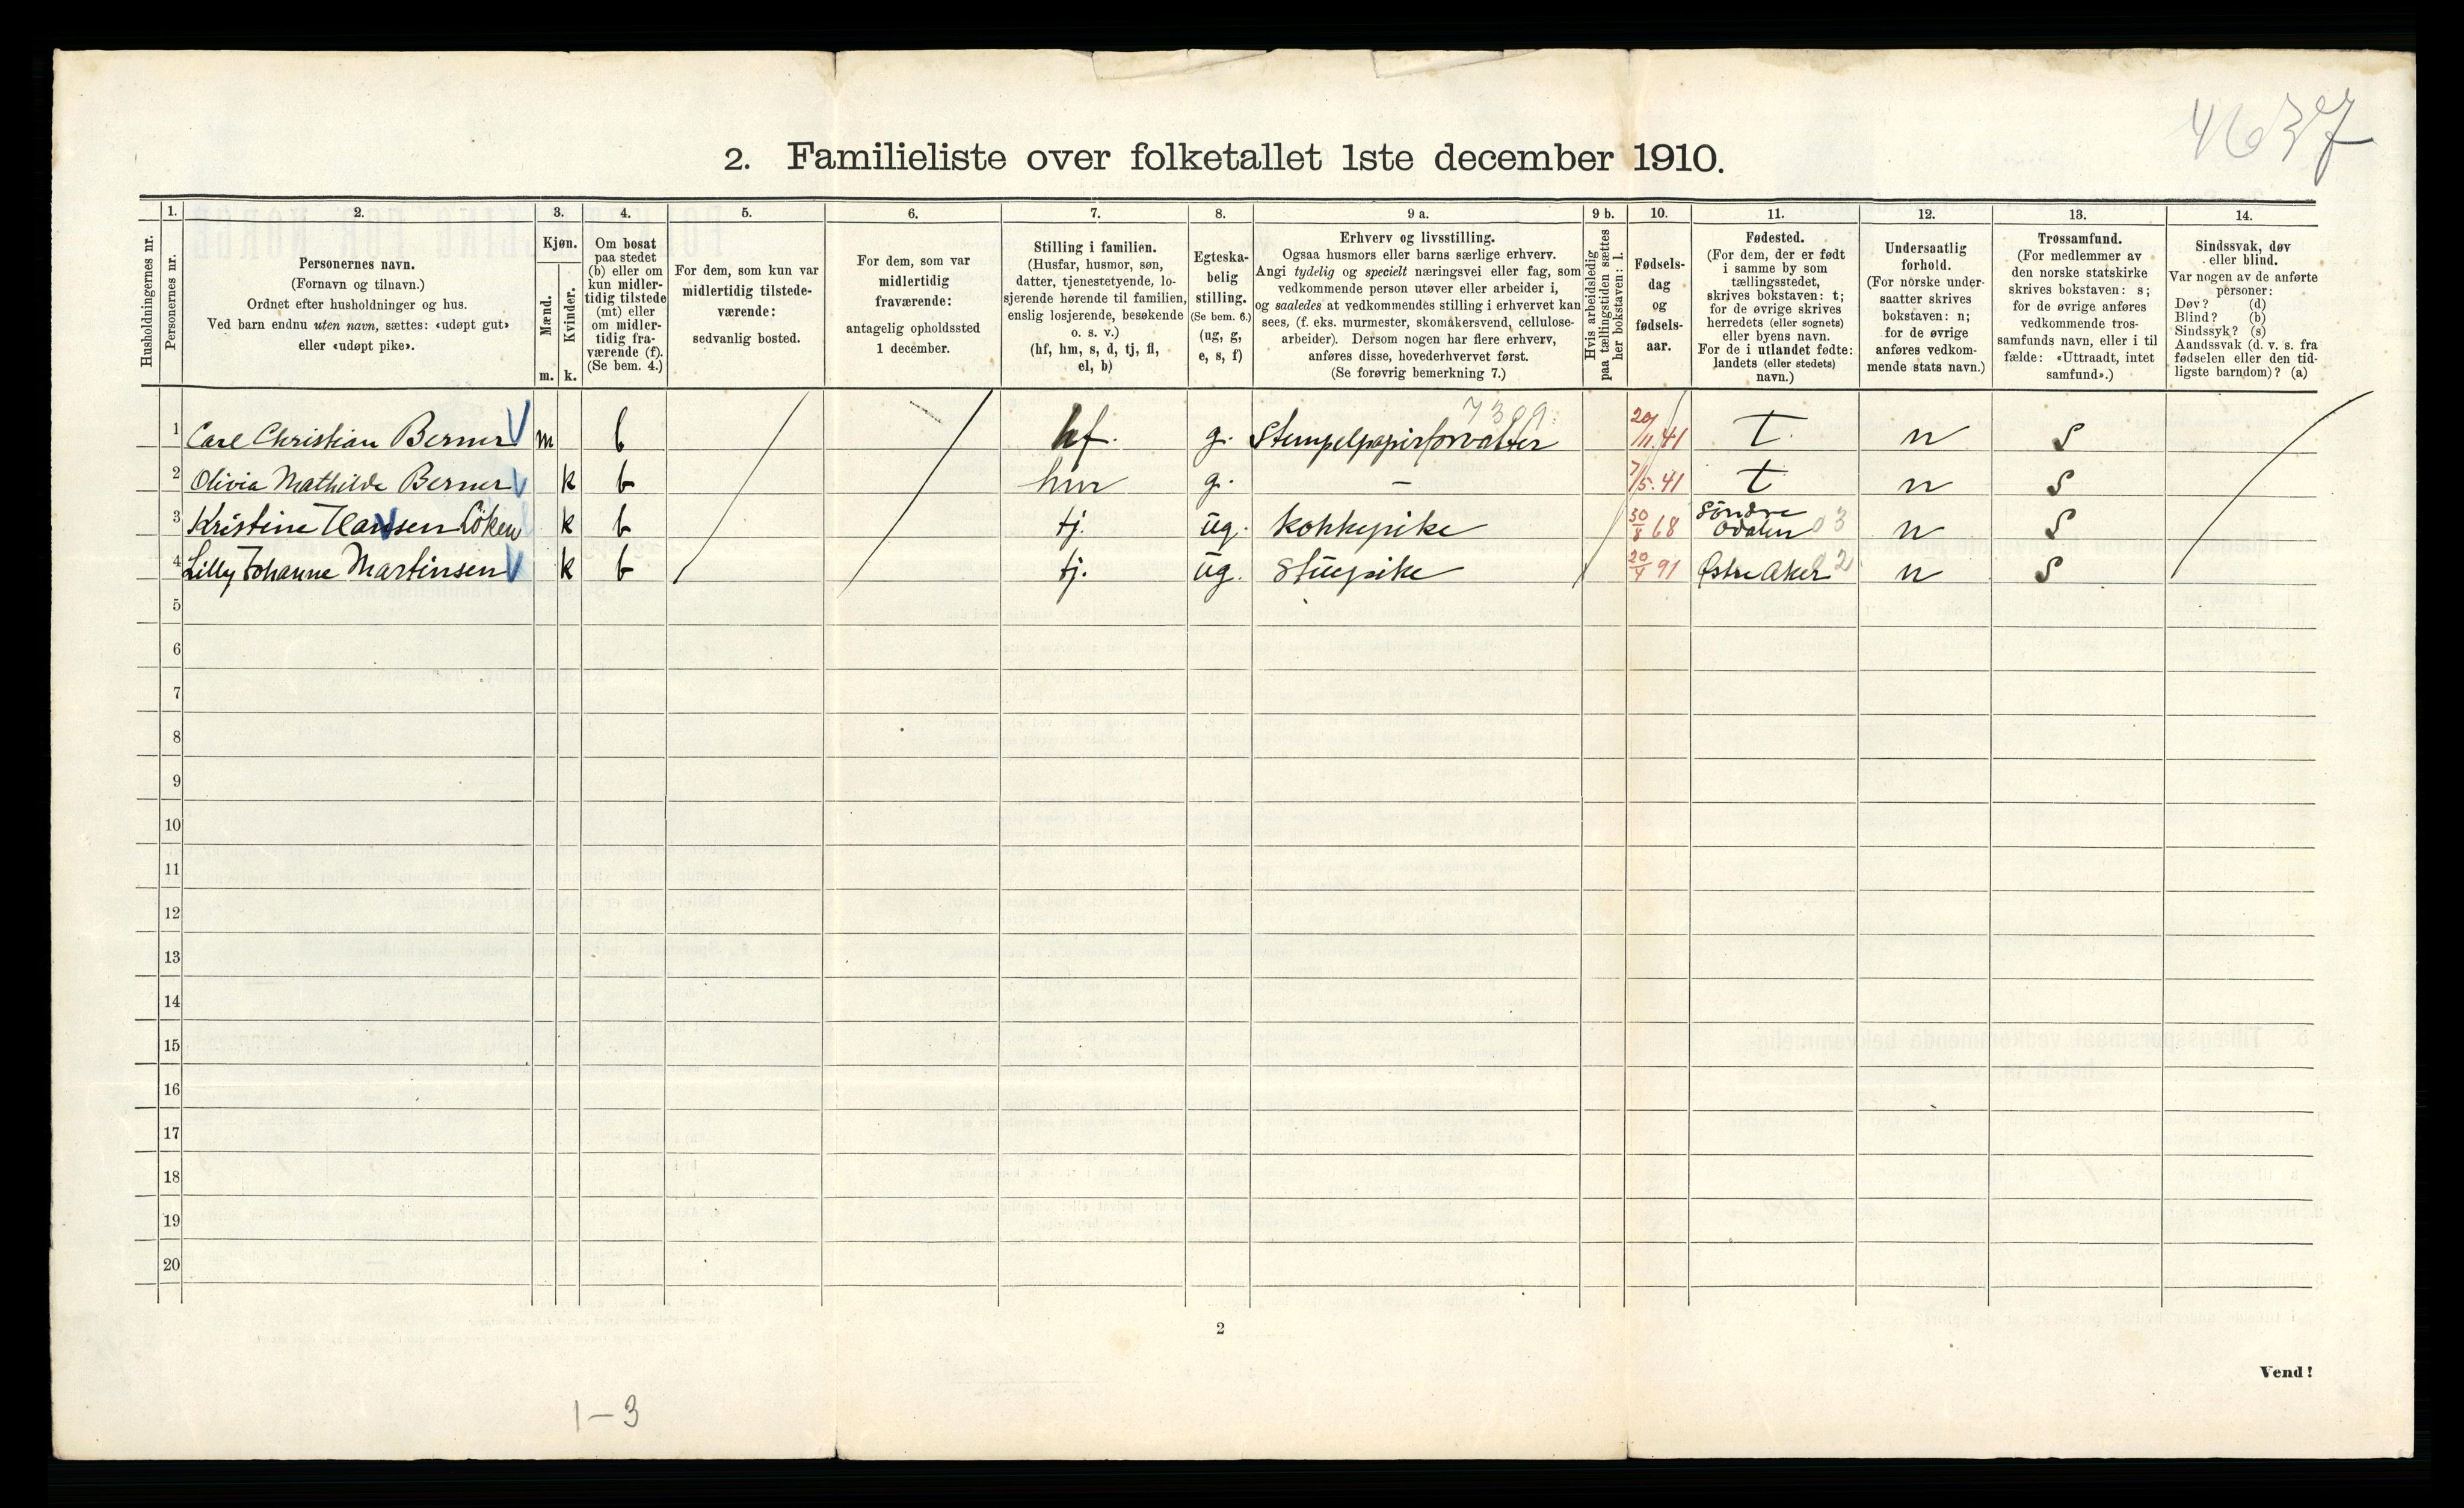 4637
2. Familieliste over folketallet 1ste december 1910.
Husholdningernes nr.
1.
Personernes nr.
2.
Personernes navn.
(Fornavn og tilnavn.)
Ordnet efter husholdninger og hus.
Ved barn endnu uten navn, sættes: «udøpt gut»
eller «udøpt pike».
3.
Kjøn.
Mænd.
Kvinder.
m. k.
4.
Om bosat
paa stedet
(b) eller om
kun midler-
tidig tilstede
(mt) eller
om midler-
tidig fra-
værende (f).
(Se bem. 4.)
5.
For dem, som kun var
midlertidig tilstede-
værende:
sedvanlig bosted.
6.
For dem, som var
midlertidig
fraværende:
antagelig opholdssted
1 december.
7.
Stilling i familien.
(Husfar, husmor, søn,
datter, tjenestetyende, lo-
sjerende hørende til familien,
enslig losjerende, besøkende
o. s. v.)
(hf, hm, s, d, tj, fl,
el, b)
8.
Egteska-
belig
stilling.
(Se bem. 6.)
(ug, g,
e, s, f)
9 a.
Erhverv og livsstilling.
Ogsaa husmors eller barns særlige erhverv.
Angi tydelig og specielt næringsvei eller fag, som
vedkommende person utøver eller arbeider i,
og saaledes at vedkommendes stilling i erhvervet kan
sees, (f. eks. murmester, skomakersvend, cellulose-
arbeider). Dersom nogen har flere erhverv,
anføres disse, hovederhvervet først.
(Se forøvrig bemerkning 7.)
9 b.
Hvis arbeidsledig
paa tællingstiden sættes
her bokstaven: l.
10.
Fødsels-
dag
og
fødsels-
aar.
11.
Fødested.
(For dem, der er født
i samme by som
tællingsstedet,
skrives bokstaven: t;
for de øvrige skrives
herredets (eller sognets)
eller byens navn.
For de i utlandet fødte:
landets (eller stedets)
navn.)
12.
Undersaatlig
forhold.
(For norske under-
saatter skrives
bokstaven: n;
for de øvrige
anføres vedkom-
mende stats navn.)
13.
Trossamfund.
(For medlemmer av
den norske statskirke
skrives bokstaven: s;
for de øvrige anføres
vedkommende tros-
samfunds navn, eller i til
fælde: «Uttraadt, intet
samfund».)
14.
Sindssvak, døv
eller blind.
Var nogen av de anførte
personer:
Døv? (d)
Blind? (b)
Sindssyk? (s)
Aandssvak (d. v. s. fra
fødselen eller den tid-
ligste barndom)? (a)
7309.
1 Carl Christian Berner m b hf. g. Stempelpapirforvalter 20/11.41 t n s
2 Olivia Mathilde Berner k b hm g. - 7/5.41 t n s
3 Kristine Hansen Löken k b tj. ug. kokkepike 30/8 68 Søndre Odalen 03 n s
4 Lilly Johanne Martinsen k b tj. ug. Stuepike 20/4 91 Østre Aker 02 n s
5
6
7
8
9
10
11
12
13
14
15
16
17
18
19
20
2
Vend!
1-3